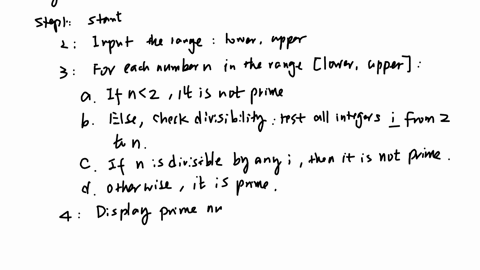 Step1: start
2: Input the range: lower, upper
3: For each number n in the range [lower, upper]:
a. If n<2, it is not prime
b. Else, check divisibility: test all integers i from 2
to n.
c. If n is divisible by any i, then it is not prime.
d. otherwise, it is prime.
4: Display prime